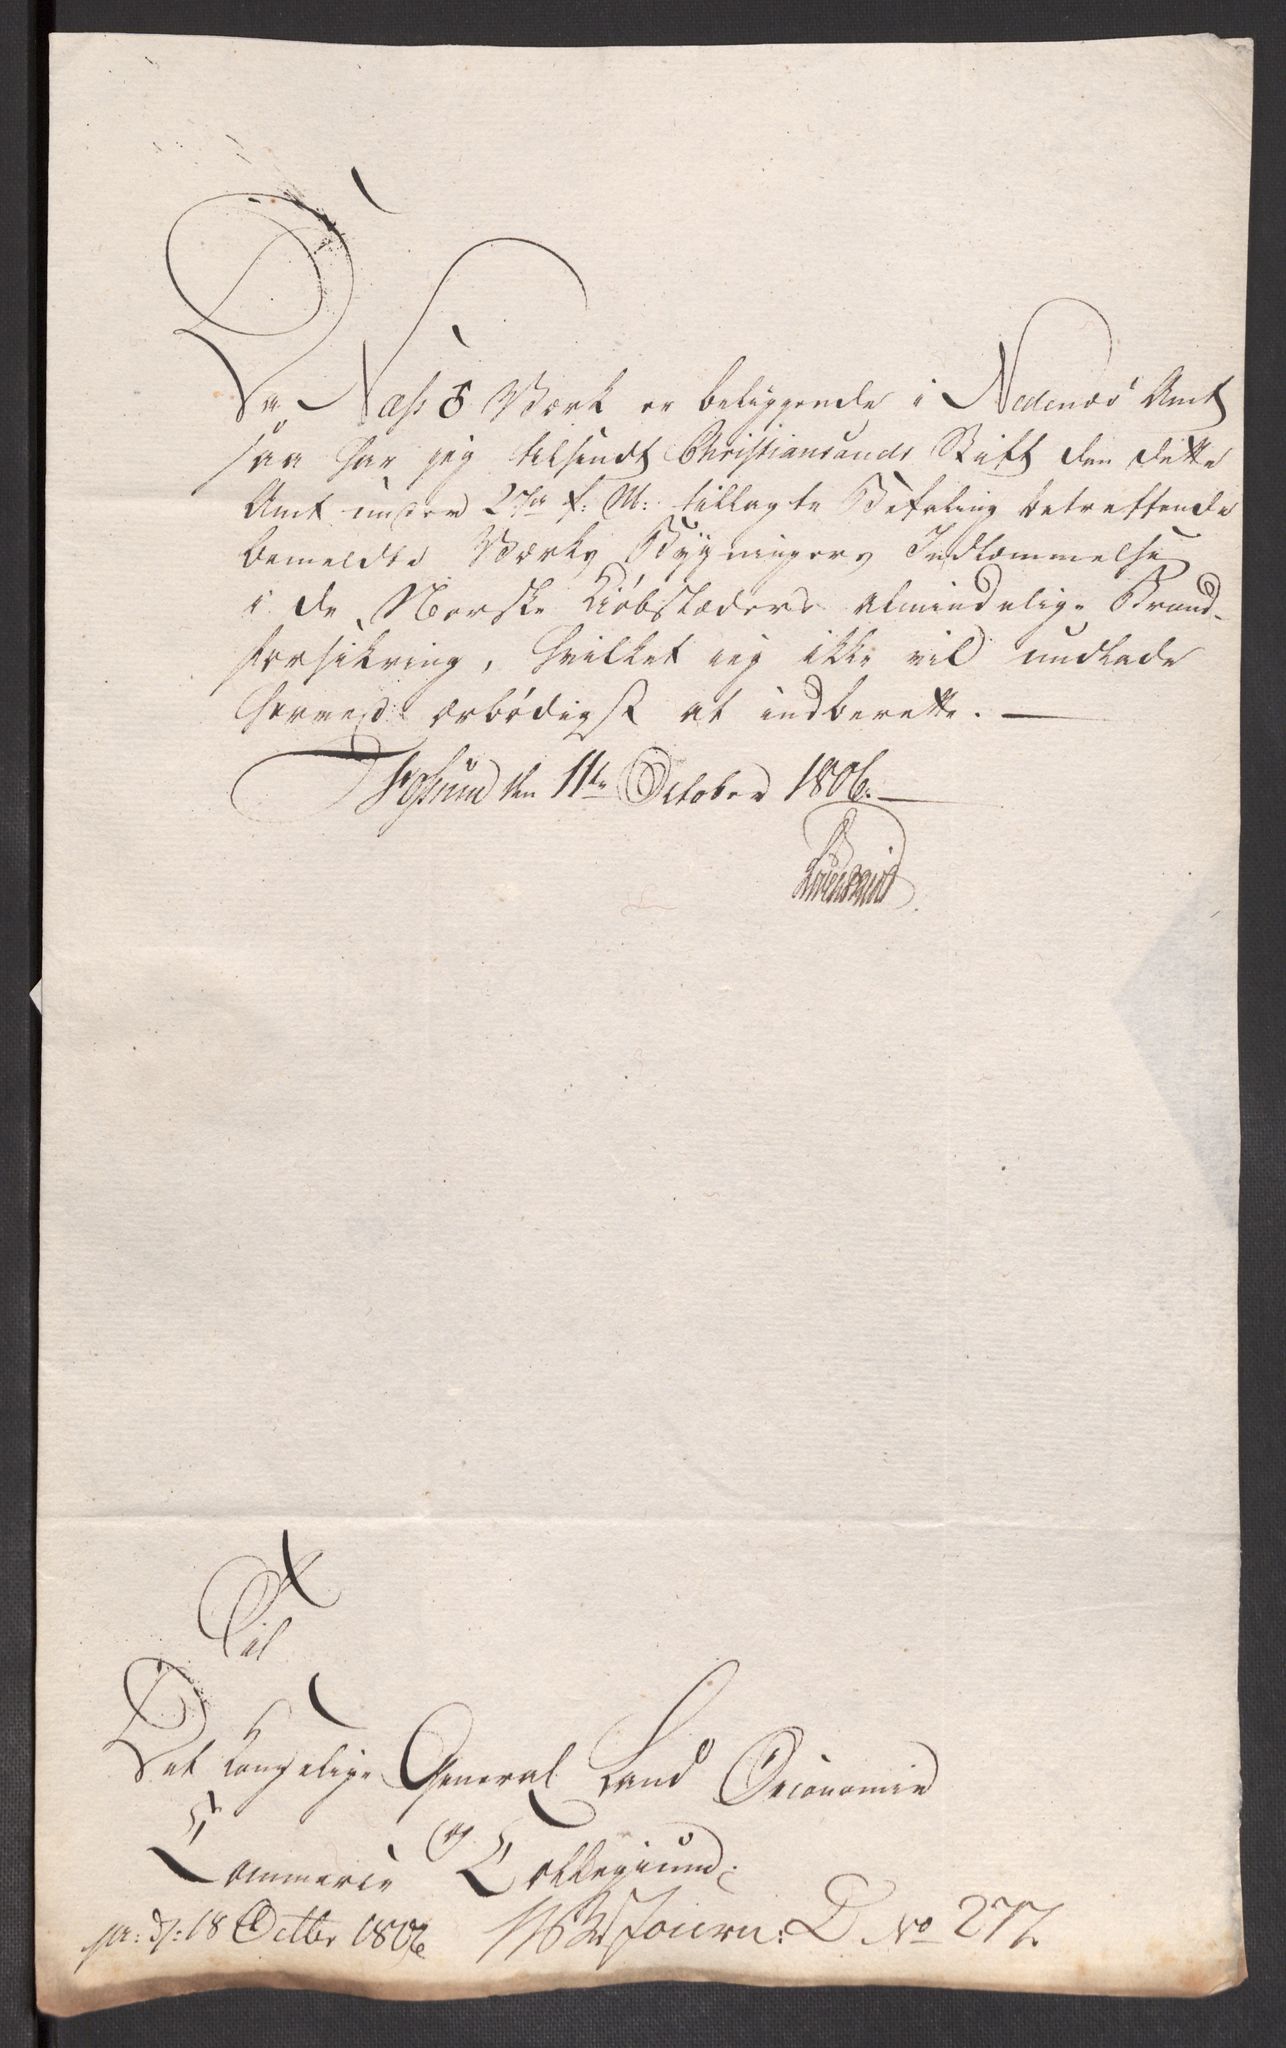 Da Næs ♁ Værk er beliggende i Nedenæs Amt
saa har jeg tilsendt Christiansands Stift den dette
Amt under 27de f: M: tillagte Befaling betreffende
bemeldte Værks Bygningers Indlemmelse
i de Norske Kiøbstæders almindelige Brand-
forsikring, hvilket jeg ikke vil undlade
herved ærbødigst at indberette. —
den 11te October 1806. —
Til
Det kongelige General Land Oeconomie
og
Commerce Collegium:
pr: d: 18 Octbr 1806 Journ: D No 277.